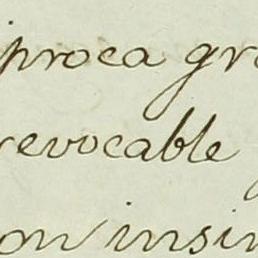 proca gra
revocable
on insin